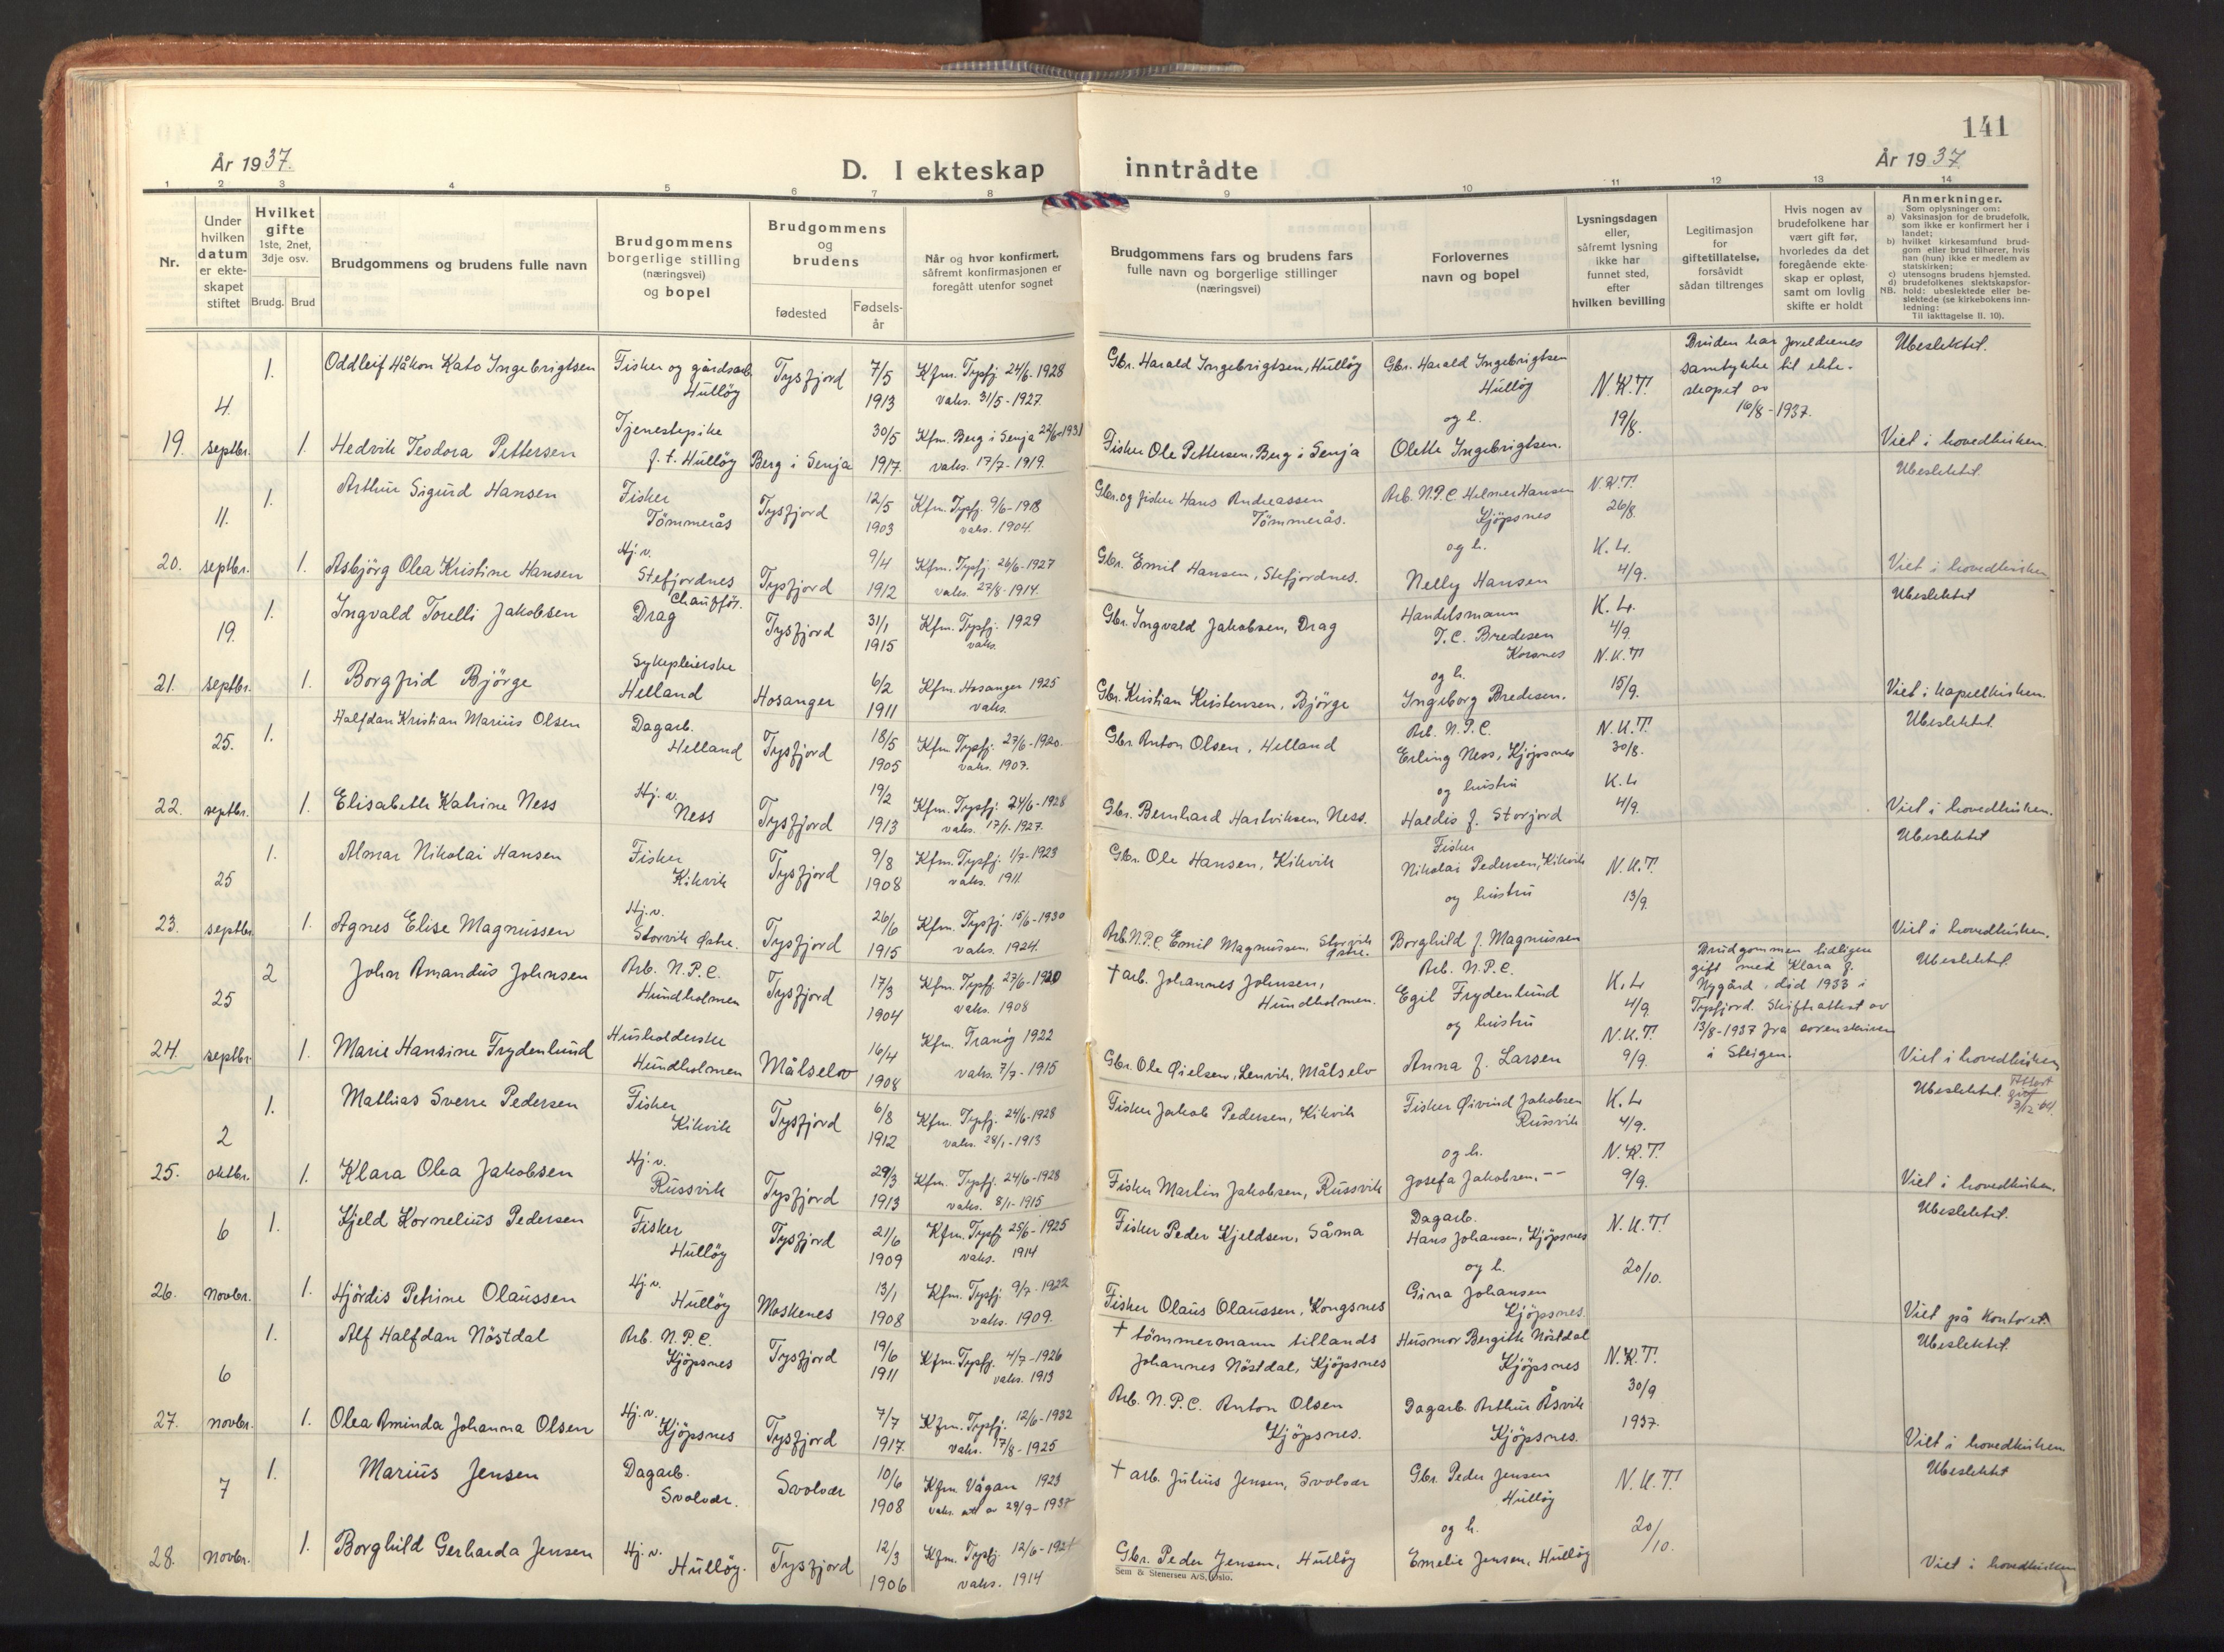 141
År 1937.
D. I ekteskap inntrådte
År 1937
1 2 3 4 5 6 7 8 9 10 11 12 13 14
Nr.
Under hvilken datum er ekteskapet stiftet
Hvilket gifte
1ste, 2net, 3dje osv.
Brudg. Brud
Brudgommens og brudens fulle navn
Brudgommens borgerlige stilling (næringsvei) og bopel
Brudgommens og brudens
fødested
Fødsels-år
Når og hvor konfirmert, såfremt konfirmasjonen er foregått utenfor sognet
Brudgommens fars og brudens fars fulle navn og borgerlige stillinger (næringsvei)
Forlovernes navn og bopel
Lysningsdagen eller, såfremt lysning ikke har funnet sted, efter hvilken bevilling
Legitimasjon for giftetillatelse, forsåvidt sådan tiltrenges
Hvis nogen av brudefolkene har vært gift før, hvorledes da det foregående ekteskap er opløst, samt om lovlig skifte er holdt
Anmerkninger.
Som oplysninger om:
a) Vaksinasjon for de brudefolk, som ikke er konfirmert her i landet;
b) hvilket kirkesamfund brudgom eller brud tilhører, hvis han (hun) ikke er medlem av statskirken;
c) utensogns brudens hjemsted.
d) brudefolkenes slektskapsforhold: ubeslektede eller beslektede (se kirkebokens innledning:
NB.
Til iakttagelse II. 10).
19. 4. septbr.
1. Oddleif Håkon Kato Ingebrigtsen Fisker og gårdsarb. Hulløy Tysfjord 7/5 1913 Kfm. Tysfj. 24/6-1928 vaks. 31/5-1927. Gbr. Harald Ingebrigtsen, Hulløy Gbr. Harald Ingebrigtsen Hulløy N.K.T. 19/8. Bruden har foreldrenes samtykke til ekteskapet av 16/8-1937. Ubeslektet.
1. Hedvik Teodora Pettersen Tjenestepike f.t. Hulløy Berg i Senja 30/5 1917. Kfm. Berg i Senja 1931 vaks. 17/7-1919. Fisker Ole Pettersen, Berg i Senja og h. Olette Ingebrigtsen. Viet i hovedkirken.
20. 11. septbr.
1. Arthur Sigurd Hansen Fisker Tömmerås Tysfjord 12/5 1903 Kfm. Tysfj. 9/6-1918 vaks. 1904. Gbr. og fisker Hans Andreassen Tömmerås. Arb. N.P.C Helmer Hansen Kjöpsnes N.K.T. 26/8. Ubeslektet
1. Asbjörg Olea Kristine Hansen Hj.v. Stefjordnes Tysfjord 9/4 1912 Kfm. Tysfj. 26/6-1927 vaks. 27/8-1914. Gbr. Emil Hansen, Stefjordnes. og h. Nelly Hansen K.L. 4/9. Viet i hovedkirken
21. 19. septbr.
1. Ingvald Torelli Jakobsen Chauffør. Drag Tysfjord 31/1 1915 Kfm. Tysfj. 1929 vaks. Gbr. Ingvald Jakobsen, Drag Handelsmann T.C. Bredesen Korsnes K.L. 4/9. Ubeslektet
1. Borgfrid Bjørge Sykepleierske Helland Hosanger 6/2 1911 Kfm. Hosanger 1925 vaks. Gbr. Kristian Kristensen, Bjørge og h. Ingeborg Bredesen. N.K.T 15/9. Viet i kapellkirken.
22. 25. septbr.
1. Halfdan Kristian Marius Olsen Dagarb. Helland Tysfjord 18/5 1905 Kfm. Tysfj. 27/6-1920. vaks. 1907. Gbr Anton Olsen, Helland Arb. N.P.C. Erling Ness, Kjöpsnes N.K.T. 30/8. Ubeslektet.
1. Elisabeth Katrine Ness Hj.v. Ness Tysfjord 19/2 1913 Kfm. Tysfj. 24/6-1928 vaks. 17/1-1927. Gbr. Bernhard Hartviksen, Ness. og hustru Haldis f. Storjord K.L 4/9. Viet i hovedkirken.
23. 25 septbr
1. Almar Nikolai Hansen Fisker Kikvik Tysfjord 9/8 1908 Kfm. Tysfj. 1/7-1923 vaks. 1911. Gbr. Ole Hansen, Kikvik Fisker Nikolai Pedersen, Kikvik N.K.T. 13/9. Ubeslektet
1. Agnes Elise Magnussen Hj.v. Storvik Østre. Tysfjord 26/6 1915 Kfm. Tysfj. 15/6-1930 vaks. 1924. Arb. N.P.C Emil Magnussen, Storvik Østre. og hustru Borghild f. Magnussen Viet i hovedkirken.
24. 25 septbr.
2 John Amandus Johnsen Arb. N.P.C. Hundholmen Tysfjord 17/3 1904 Kfm. Tysfj. 27/6-1920 vaks. 1908 † arb. Johannes Johnsen, Hundholmen. Arb. N.P.C. Egil Frydenlund K.L 4/9. Brudgommen tidligere gift med Klara f. Nygård, død 1933 i Tysfjord. Skifteattest av 13/8-1937 fra sorenskriveren i Steigen. Ubeslektet.
1. Marie Hansine Frydenlund Husholderske Hundholmen Målselv 16/4 1908 Kfm. Tranøy 1922 vaks. 7/7-1915 Gbr. Ole Øielsen, Lenvik, Målselv og hustru Anna f. Larsen N.K.T 9/9. Viet i hovedkirken
25. 2 oktbr.
1. Mathias Sverre Pedersen Fisker Kikvik Tysfjord 6/8 1912 Kfm. Tysfj. 24/6-1928 vaks. 28/1-1913 Fisker Jakob Pedersen, Kikvik Fisker Øivind Jakobsen Russvik K.L 4/9. Ubeslektet. Attest 3/12 64
1. Klara Olea Jakobsen Hj.v. Russvik Tysfjord 29/3 1913 Kfm. Tysfj. 24/6-1928 vaks. 8/1-1915 Fisker Martin Jakobsen, Russvik og h. Josefa Jakobsen, -- N.K.T. 9/9. Viet i hovedkirken.
26. 6 novbr.
1. Kjeld Kornelius Pedersen Fisker Hulløy Tysfjord 21/6 1909 Kfm. Tysfj 25/6-1925 vaks. 1914 Fisker Peder Kjeldsen, Såma Dagarb. Hans Johansen, Kjöpsnes N.K.T. 20/10. Ubeslektet.
1. Hjördis Petrine Olaussen Hj.v. Hulløy Moskenes 13/1 1908 Kfm. Tysfj. 9/7-1922 vaks. 1909. Fisker Olaus Olaussen, Kongsnes og h. Gina Johansen Kjöpsnes. Viet på kontoret.
27. 6 novbr.
1. Alf Halfdan Nöstdal Arb. N.P.C. Kjöpsnes Tysfjord 19/6 1911 Kfm. Tysfj. 4/7-1926 vaks. 1913 † tömmermann tillands Johannes Nöstdal, Kjöpsnes Husmor Bergitte Nöstdal Kjöpsnes N.K.T. 30/9 1937. Ubeslektet.
1. Olea Aminda Johanna Olsen Hj.v. Kjöpsnes Tysfjord 7/7 1917. Kfm. Tysfj. 12/6-1932 vaks. 17/8-1925 Arb. N.P.C. Anton Olsen Kjöpsnes. Dagarb. Arthur Åsvik Kjöpsnes. Viet i hovedkirken
28. 7 novbr.
1. Marius Jensen Dagarb. Svolvær. Svolvær 10/6 1908 Kfm. Vågan 1923 vaks. att av 29/9-1937 † arb. Julius Jensen, Svolvær Gbr. Peder Jensen Hulløy N.K.T. 20/10. Ubeslektet
1. Borghild Gerharda Jensen Hj.v. Hulløy. Tysfjord 12/3 1906 Kfm. Tysfj. 12/6-1921 vaks. 1914 Gbr. Peder Jensen, Hulløy og h. Emelie Jensen, Hulløy Viet i hovedkirken
Sem & Stenersen A/S, Oslo.